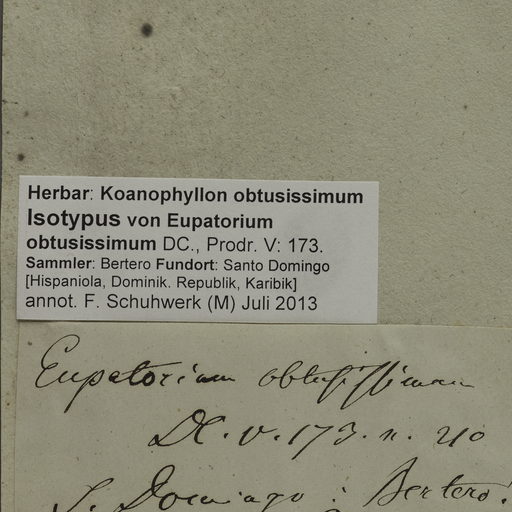 Herbar: Koanophyllon obtusissimum
Isotypus von Eupatorium
obtusissimum DC., Prodr. V: 173.
Sammler: Bertero Fundort: Santo Domingo
[Hispaniola, Dominik. Republik, Karibik]
annot. F. Schuhwerk (M) Juli 2013
Eupatorium obtusissimum
DC. V. 173. n. 210
S. Domingo : Bertero!